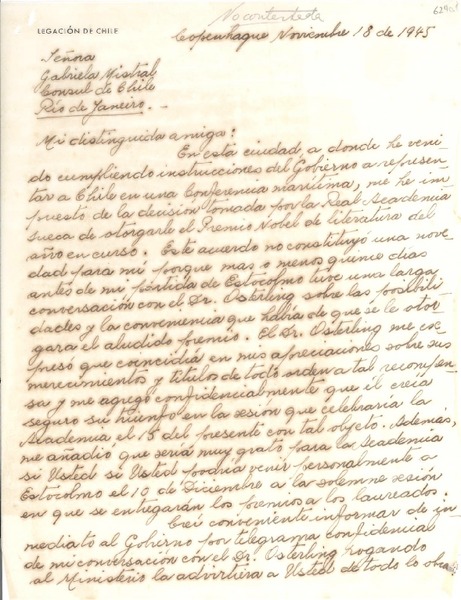 No contestada
6290
LEGACIÓN DE CHILE
Copenhague Noviembre 18 de 1945
Señora
Gabriela Mistral
Consul de Chile
Río de Janeiro. -
Mi distinguida amiga:
En esta ciudad, a donde he veni
do cumpliendo instrucciones del Gobierno a represen
tar a Chile en una Conferencia marítima, me he im
puesto de la decision tomada por la Real Academia
sueca de otorgarle el Premio Nobel de literatura del
año en curso. Este acuerdo no constituyó una nove
dad para mí porque mas o menos quince días
antes de mi partida de Estocolmo tuve una larga
conversación con el Dr. Osterling sobre las posibili
dades y la conveniencia que había de que se le otor
gara el aludido premio. El Dr. Osterling me ex
presó que coincidía en mis apreciaciones sobre sus
merecimientos y títulos de todo orden a tal recompen
sa y me agregó confidencialmente que él creía
seguro su triunfo en la sesión que celebraría la
Academia el 15 del presente con tal objeto. Además,
me añadio que sería muy grato para la Academia
si Usted si Usted podría venir personalmente a
Estocolmo el 10 de Diciembre a la solemne sesión
en que se entregarán los premios a los laureados.
Creí conveniente informar de in
mediato al Gobierno por telegrama confidencial
de mi conversación con el Dr. Osterling rogando
al Ministerio la advirtiera a Usted de todo lo